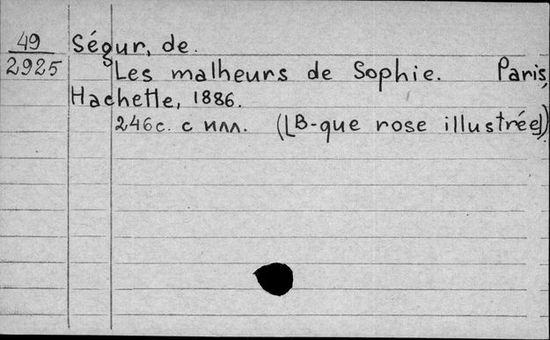 49 Ségur, de.
2925 Les malheurs de Sophie. Paris,
Hachette, 1886.
246с. с илл. ([B-que rose illustrée])